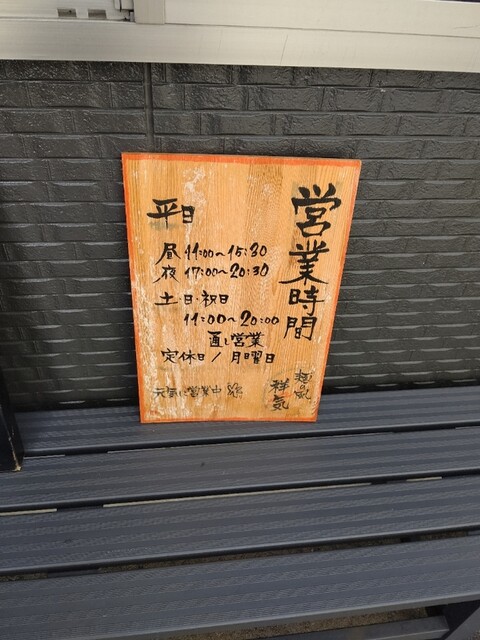 営業時間
平日
昼 11:00〜15:30
夜 17:00〜20:30
土・日・祝日
11:00〜20:00
通し営業
定休日/月曜日
元気に営業中
麺の風
祥気